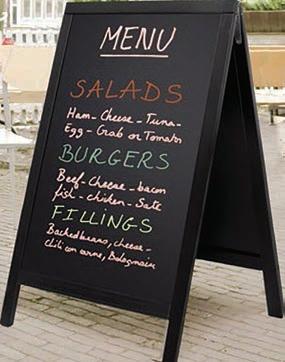 MENU
SALADS
Ham - Cheese - Tuna -
Egg - Crab or Tomato
BURGERS
Beef - Cheese - bacon
fish - chicken - Sate
FILLINGS
Backed beans, cheese -
Chili con carne, Bolognaise